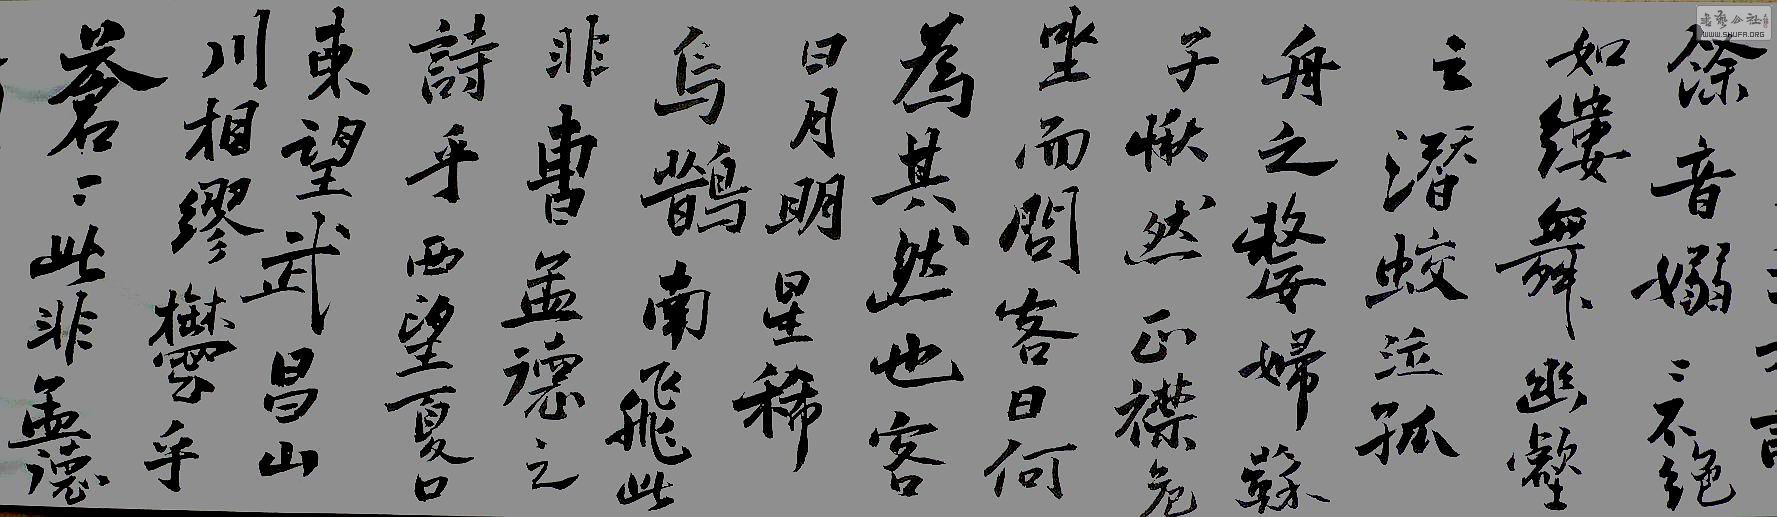 餘音嫋〻不絕
如縷舞幽壑
之潛蛟泣孤
舟之嫠婦蘇
子愀然正襟危
坐而問客曰何
為其然也客
曰月明星稀
烏鵲南飛此
非曹孟德之
詩乎西望夏口
東望武昌山
川相繆欝乎
蒼〻此非孟德
書藝公社
WWW.SHUFA.ORG